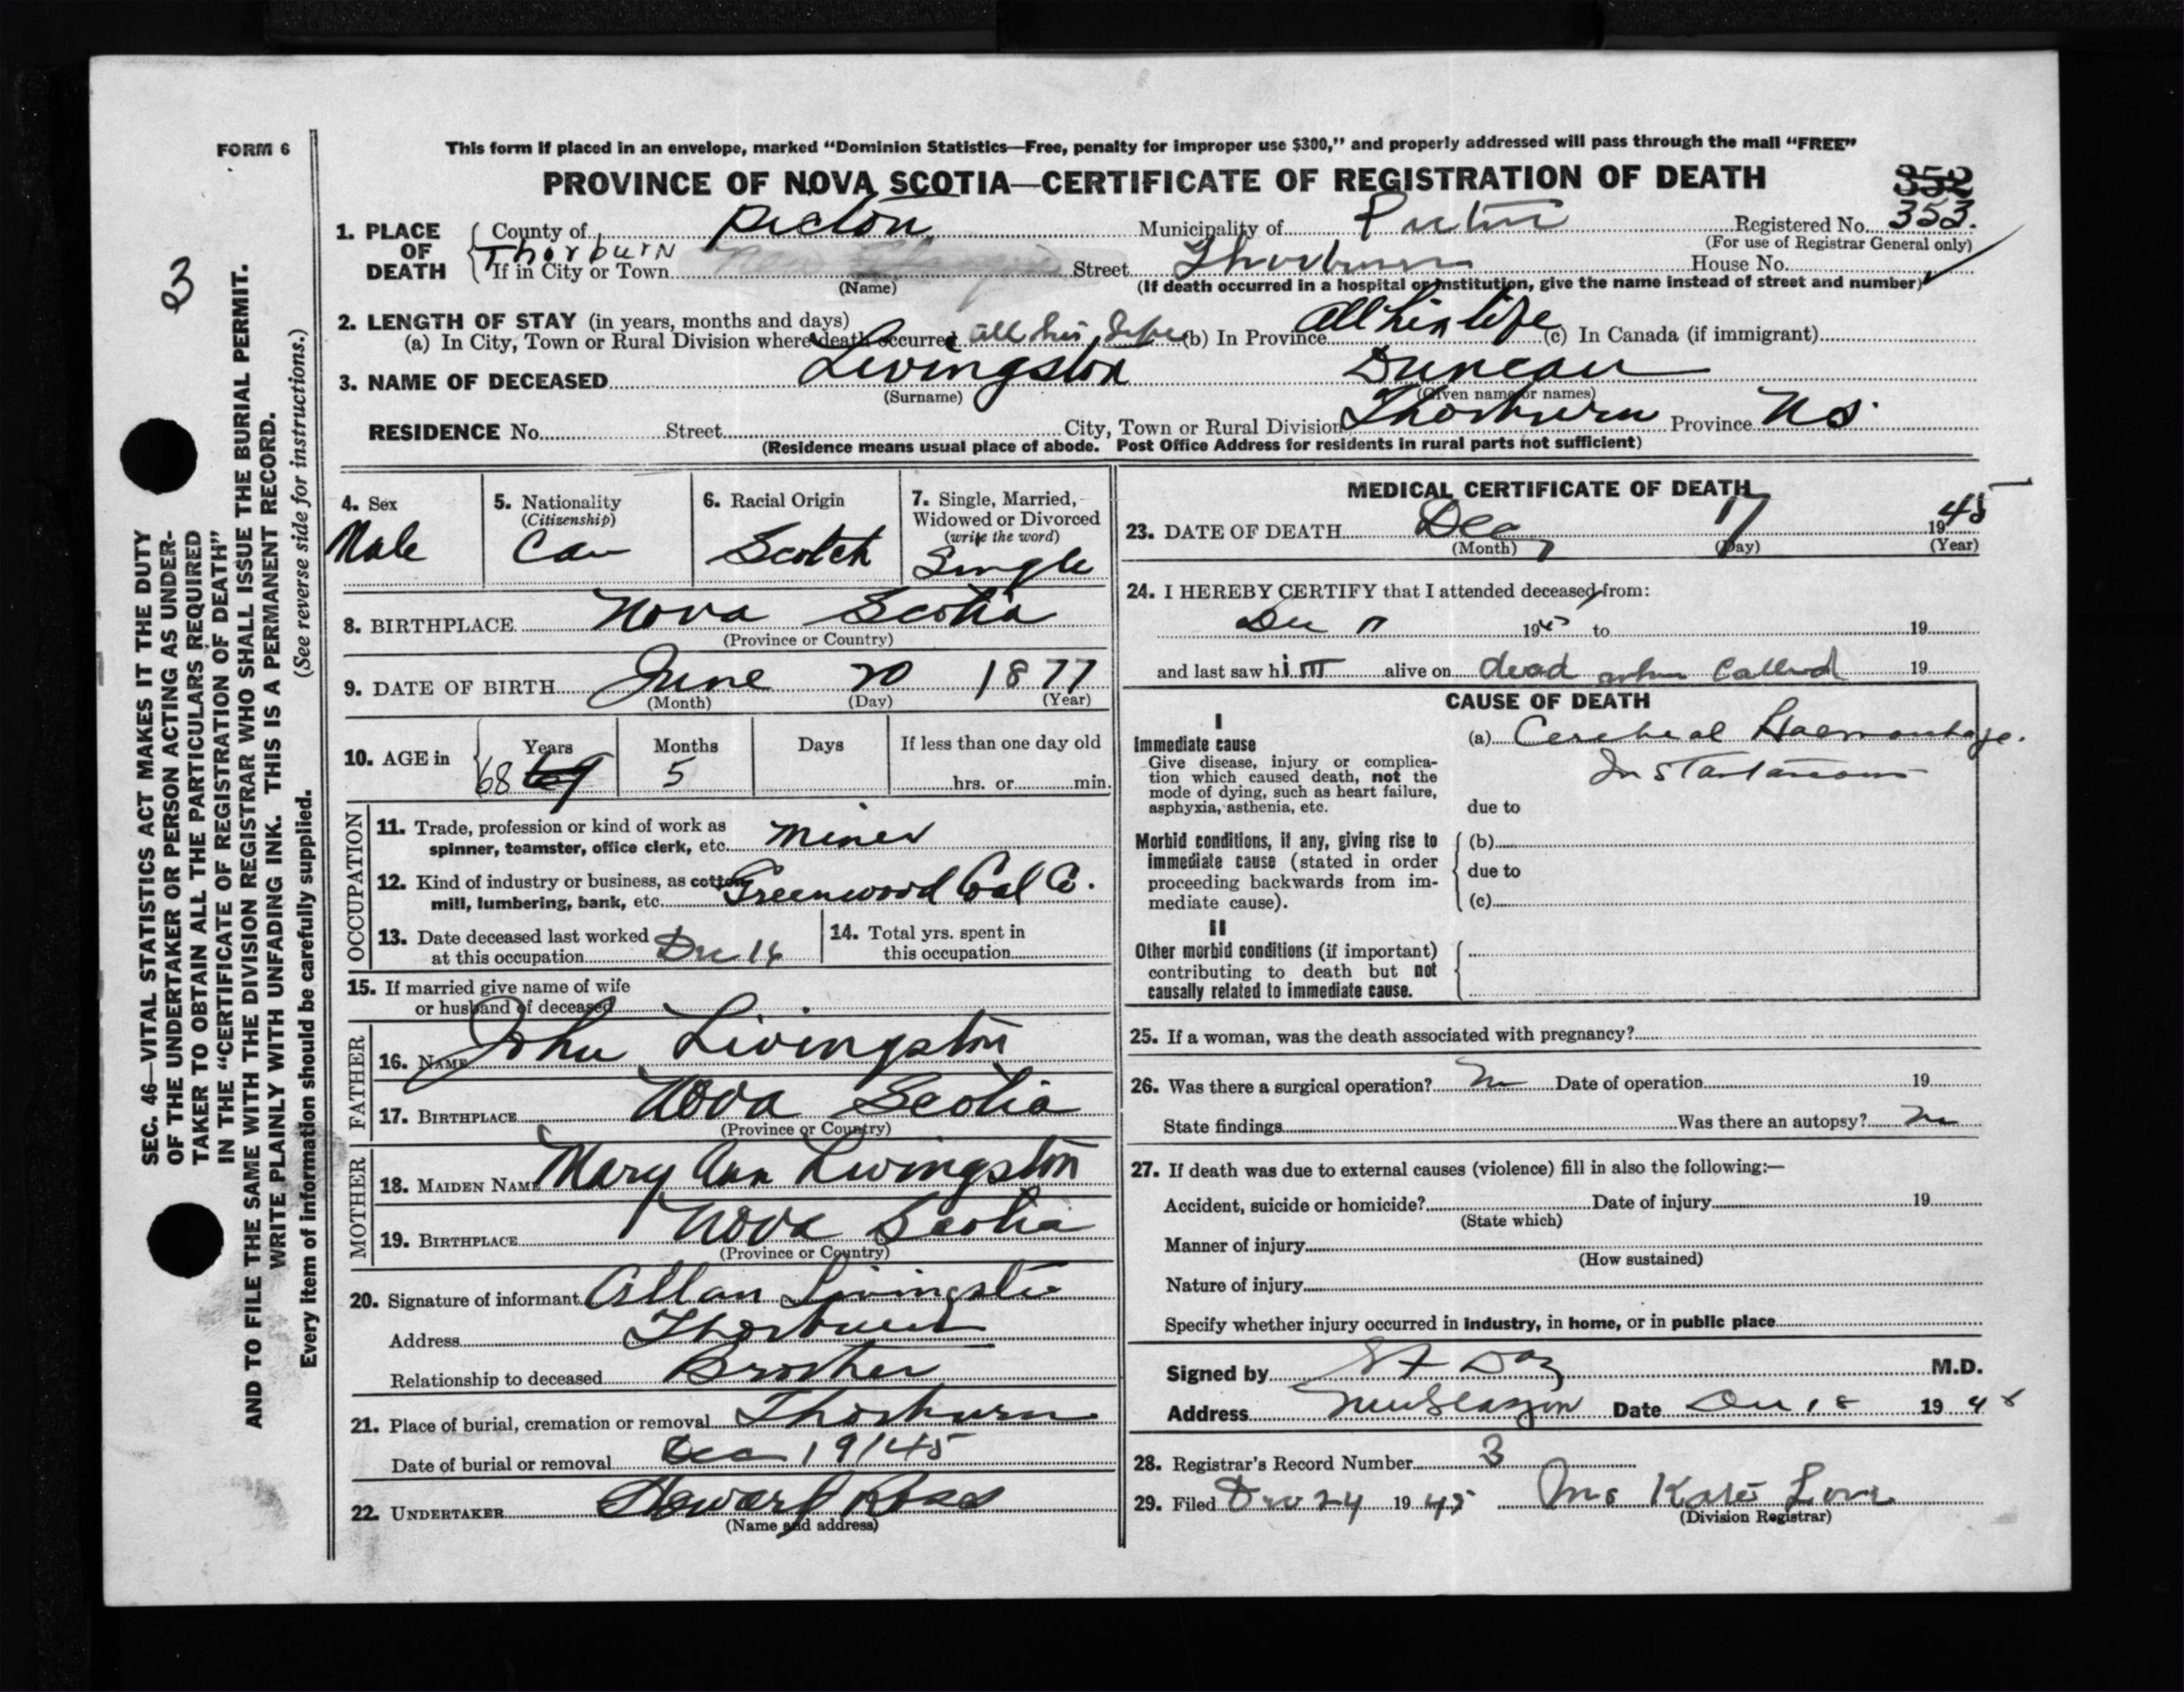 FORM 6
This form if placed in an envelope, marked “Dominion Statistics—Free, penalty for improper use $300,” and properly addressed will pass through the mail “FREE”
PROVINCE OF NOVA SCOTIA—CERTIFICATE OF REGISTRATION OF DEATH
352
1. PLACE OF DEATH
County of Pictou Municipality of Pictou Registered No. 353.
(For use of Registrar General only)
Thorburn
If in City or Town Street Thorburn House No.
(Name) (If death occurred in a hospital or institution, give the name instead of street and number)
2. LENGTH OF STAY (in years, months and days)
(a) In City, Town or Rural Division where death occurred all his life (b) In Province All his life (c) In Canada (if immigrant)
3. NAME OF DECEASED Livingston Duncan
(Surname) (Given name or names)
RESIDENCE No. Street City, Town or Rural Division Thorburn Province NS.
(Residence means usual place of abode. Post Office Address for residents in rural parts not sufficient)
4. Sex
Male
5. Nationality
(Citizenship)
Can
6. Racial Origin
Scotch
7. Single, Married,
Widowed or Divorced
(write the word)
Single
8. BIRTHPLACE Nova Scotia
(Province or Country)
9. DATE OF BIRTH June 20 1877
(Month) (Day) (Year)
10. AGE in
Years Months Days If less than one day old
68 69 5 hrs. or min.
OCCUPATION
11. Trade, profession or kind of work as
spinner, teamster, office clerk, etc. Miner
12. Kind of industry or business, as cotton
mill, lumbering, bank, etc. Greenwood Coal Co.
13. Date deceased last worked
at this occupation Dec 16
14. Total yrs. spent in
this occupation
15. If married give name of wife
or husband of deceased
FATHER
16. NAME John Livingston
17. BIRTHPLACE Nova Scotia
(Province or Country)
MOTHER
18. MAIDEN NAME Mary Ann Livingston
19. BIRTHPLACE Nova Scotia
(Province or Country)
20. Signature of informant Allan Livingston
Address Thorburn
Relationship to deceased Brother
21. Place of burial, cremation or removal Thorburn
Date of burial or removal Dec 19/45
22. UNDERTAKER Howard Ross
(Name and address)
MEDICAL CERTIFICATE OF DEATH
23. DATE OF DEATH Dec 17 1945
(Month) (Day) (Year)
24. I HEREBY CERTIFY that I attended deceased from:
Dec 17 1945 to 19
and last saw him alive on dead when Called 19
CAUSE OF DEATH
I
Immediate cause
Give disease, injury or complica-
tion which caused death, not the
mode of dying, such as heart failure,
asphyxia, asthenia, etc.
(a) Cerebral Haemorrhage.
Instantaneous
due to
Morbid conditions, if any, giving rise to
immediate cause (stated in order
proceeding backwards from im-
mediate cause).
(b)
due to
(c)
II
Other morbid conditions (if important)
contributing to death but not
causally related to immediate cause.
25. If a woman, was the death associated with pregnancy?
26. Was there a surgical operation? no Date of operation 19
State findings Was there an autopsy? no
27. If death was due to external causes (violence) fill in also the following:—
Accident, suicide or homicide? Date of injury 19
(State which)
Manner of injury
(How sustained)
Nature of injury
Specify whether injury occurred in industry, in home, or in public place
Signed by Day M.D.
Address New Glasgow Date Dec 18 1945
28. Registrar's Record Number 3
29. Filed Dec 24 1945 Mrs Kate Love
(Division Registrar)
3
SEC. 46—VITAL STATISTICS ACT MAKES IT THE DUTY
OF THE UNDERTAKER OR PERSON ACTING AS UNDER-
TAKER TO OBTAIN ALL THE PARTICULARS REQUIRED
IN THE “CERTIFICATE OF REGISTRATION OF DEATH”
AND TO FILE THE SAME WITH THE DIVISION REGISTRAR WHO SHALL ISSUE THE BURIAL PERMIT.
WRITE PLAINLY WITH UNFADING INK. THIS IS A PERMANENT RECORD.
Every item of information should be carefully supplied. (See reverse side for instructions.)